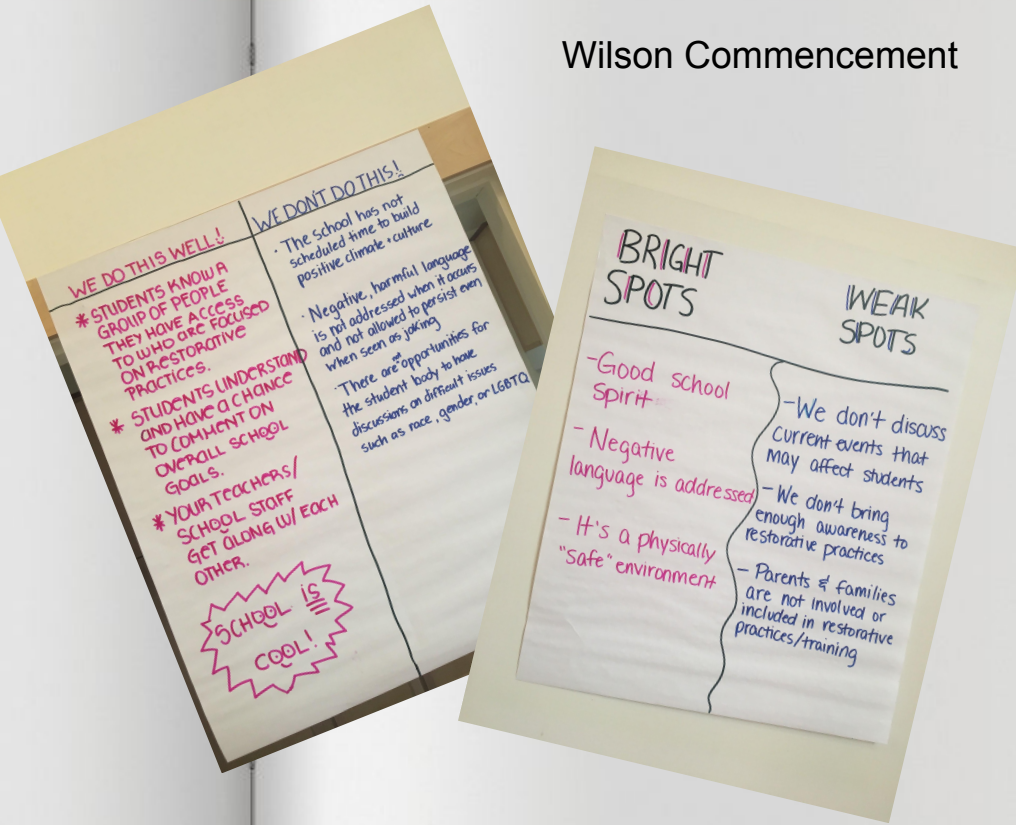 Wilson Commencement
WE DO THIS WELL!
* STUDENTS KNOW A
GROUP OF PEOPLE
THEY HAVE ACCESS
TO WHO ARE FOCUSED
ON RESTORATIVE
PRACTICES.
* STUDENTS UNDERSTAND
AND HAVE A CHANCE
TO COMMENT ON
OVERALL SCHOOL
GOALS.
* YOUR TEACHERS/
SCHOOL STAFF
GET ALONG W/ EACH
OTHER.
SCHOOL IS
COOL!
WE DON'T DO THIS!
· The school has not
scheduled time to build
positive climate + culture
· Negative, harmful language
is not addressed when it occurs
and not allowed to persist even
when seen as joking
· There are not opportunities for
the student body to have
discussions on difficult issues
such as race, gender, or LGBTQ
BRIGHT
SPOTS
- Good school
Spirit
- Negative
language is addressed
- It's a physically
"Safe" environment
WEAK
SPOTS
- We don't discuss
current events that
may affect students
- We don't bring
enough awareness to
restorative practices
- Parents & families
are not involved or
included in restorative
practices/training